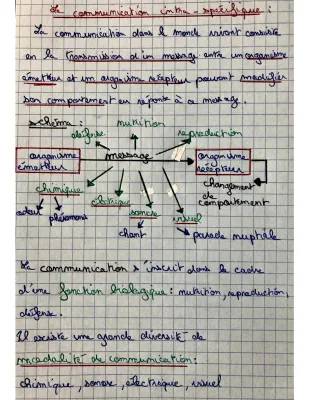 La communication intra-spécifique :
La communication dans le monde vivant consiste
en la transmission d'un message entre un organisme
émetteur et un organisme récepteur pouvant modifier
son comportement en réponse à ce message.
schéma :
nutrition
défense
reproduction
organisme émetteur
message
organisme récepteur
changement de comportement
chimique
électrique
sonore
visuel
odeur
phéromone
chant
parade nuptiale
La communication s'inscrit dans le cadre
d'une fonction biologique : nutrition, reproduction,
défense.
Il existe une grande diversité de
modalité de communication :
chimique, sonore, électrique, visuel